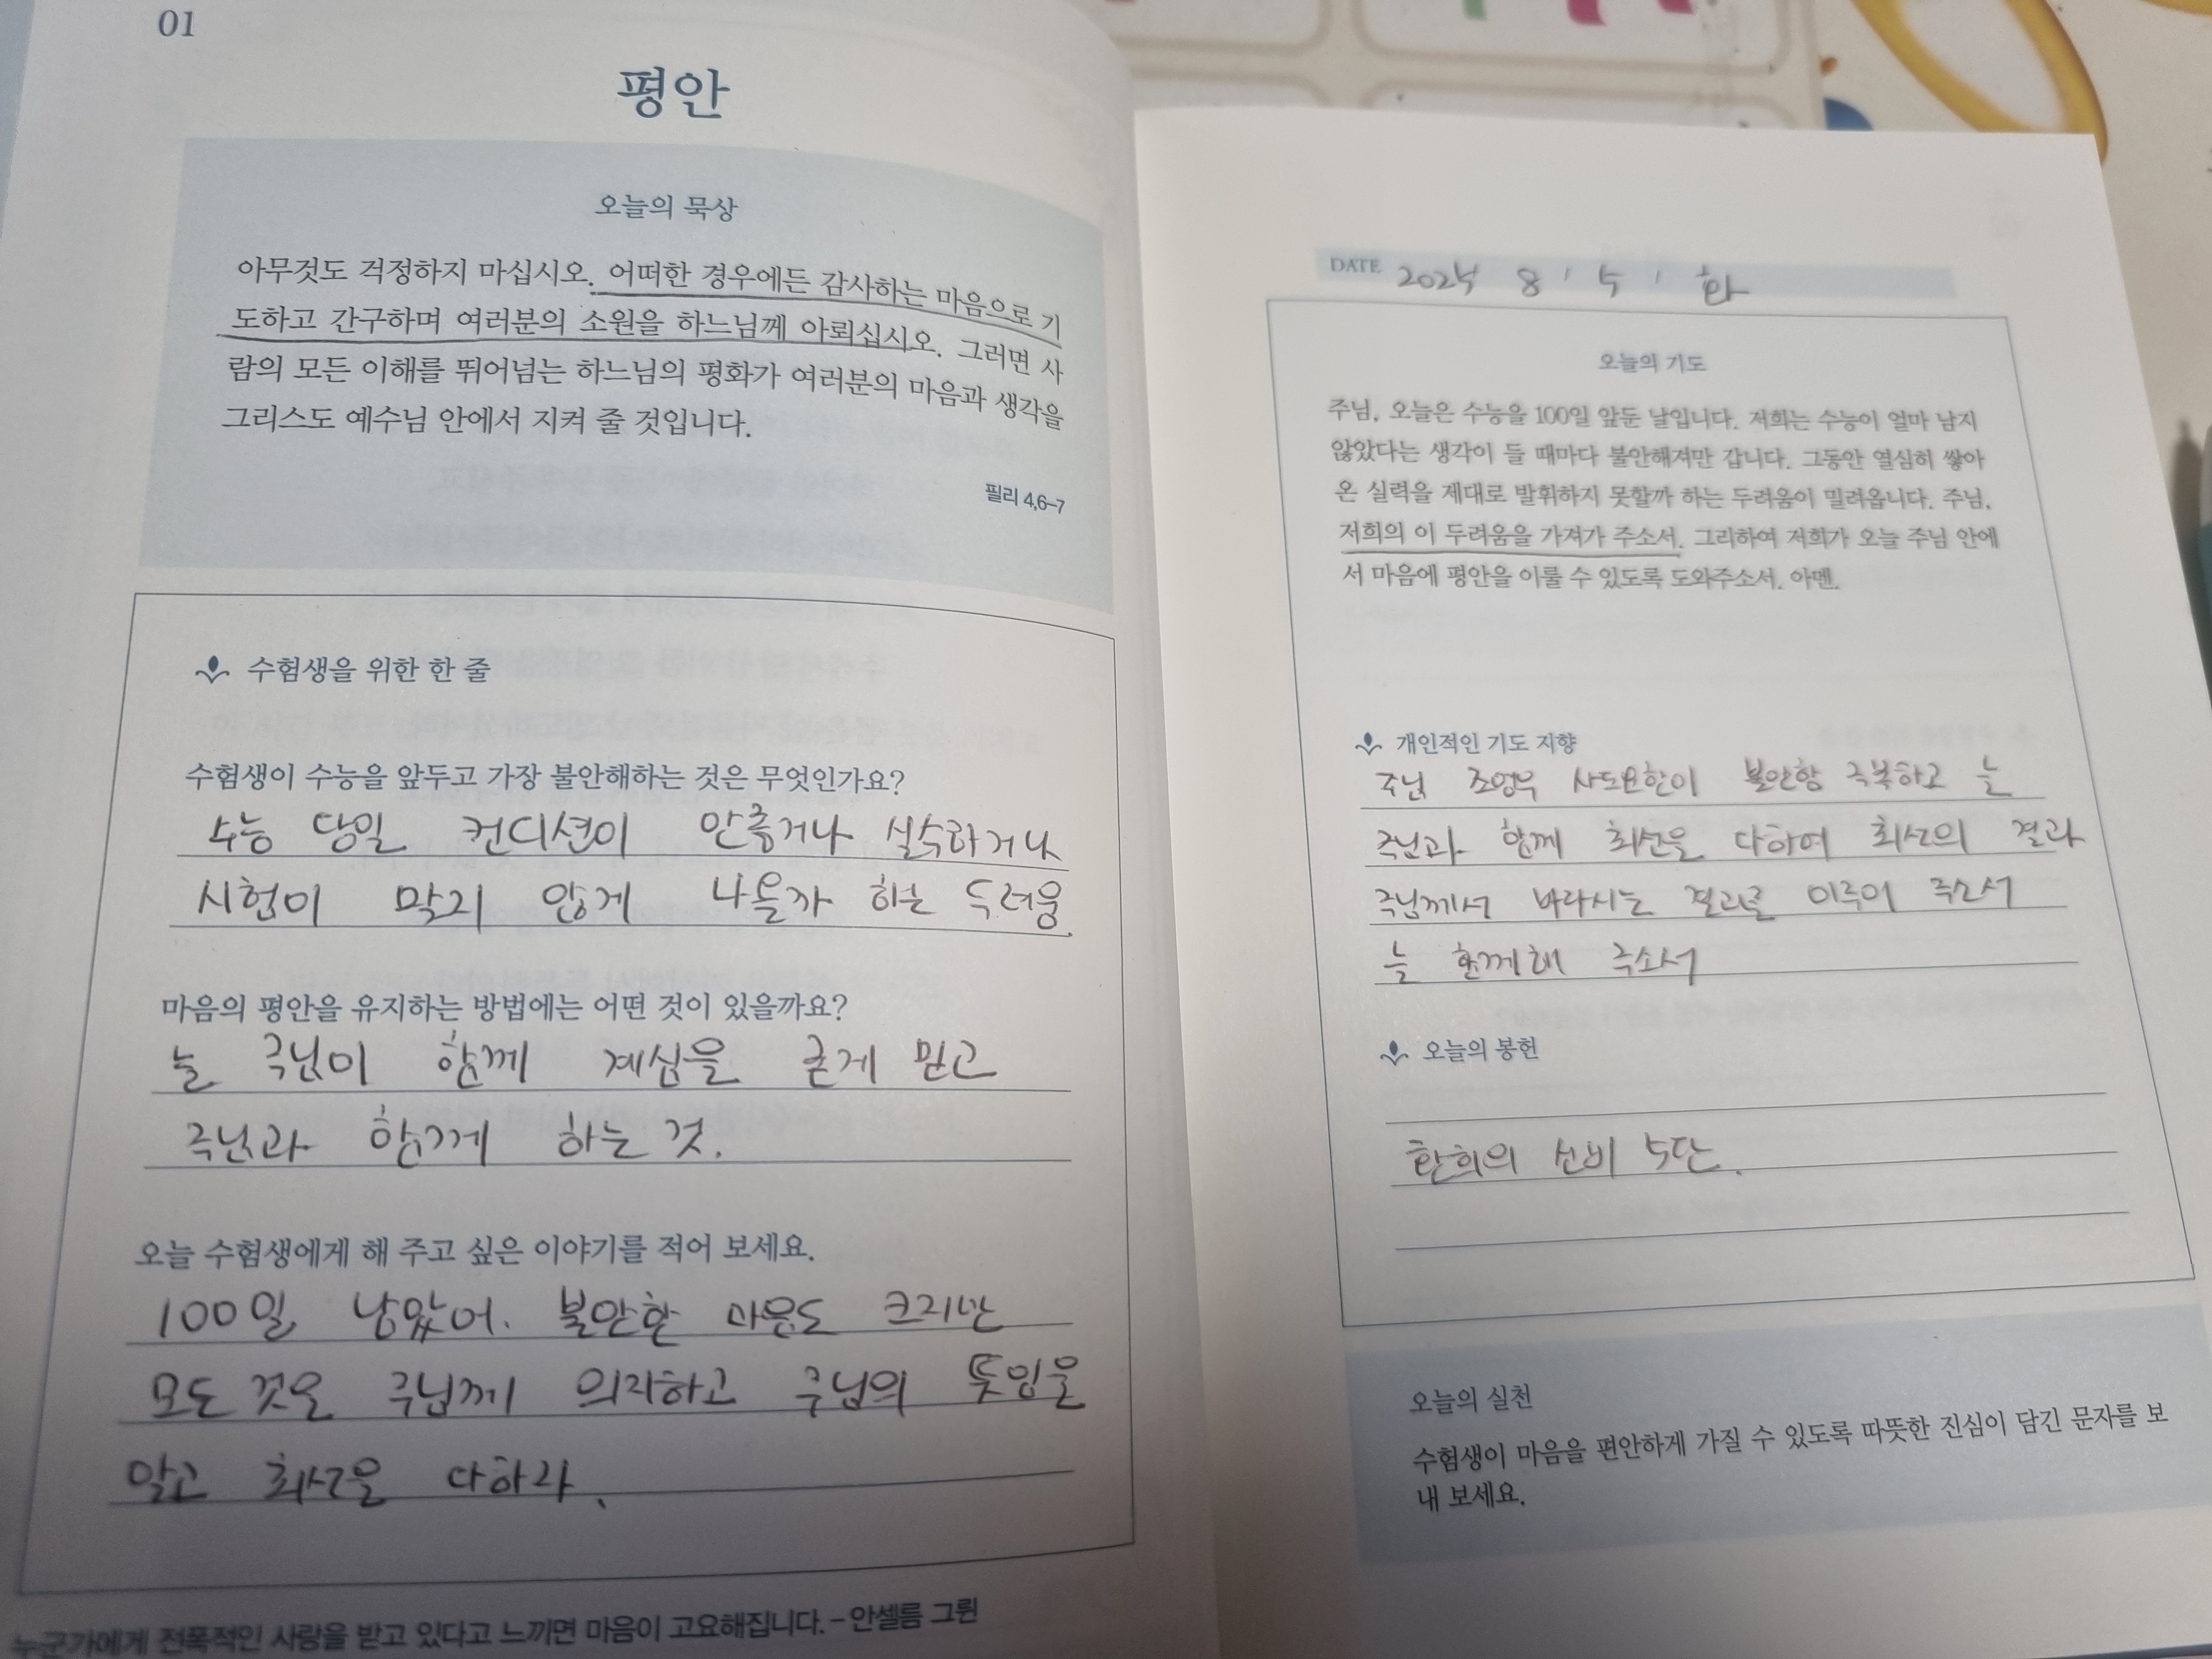 01
평안
오늘의 묵상
아무것도 걱정하지 마십시오. 어떠한 경우에든 감사하는 마음으로 기
도하고 간구하며 여러분의 소원을 하느님께 아뢰십시오. 그러면 사
람의 모든 이해를 뛰어넘는 하느님의 평화가 여러분의 마음과 생각을
그리스도 예수님 안에서 지켜 줄 것입니다.
필리 4,6-7
수험생을 위한 한 줄
수험생이 수능을 앞두고 가장 불안해하는 것은 무엇인가요?
수능 당일 컨디션이 안좋거나 실수하거나
시험이 맞지 않게 나올까 하는 두려움.
마음의 평안을 유지하는 방법에는 어떤 것이 있을까요?
늘 주님이 함께 계심을 굳게 믿고
주님과 함께 하는 것.
오늘 수험생에게 해 주고 싶은 이야기를 적어 보세요.
100일 남았어. 불안한 마음도 크지만
모든 것을 주님께 의지하고 주님의 뜻임을
알고 최선을 다하라.
누군가에게 전폭적인 사랑을 받고 있다고 느끼면 마음이 고요해집니다. – 안셀름 그륀
DATE 2025 8 / 5 / 화
오늘의 기도
주님, 오늘은 수능을 100일 앞둔 날입니다. 저희는 수능이 얼마 남지
않았다는 생각이 들 때마다 불안해져만 갑니다. 그동안 열심히 쌓아
온 실력을 제대로 발휘하지 못할까 하는 두려움이 밀려옵니다. 주님,
저희의 이 두려움을 가져가 주소서. 그리하여 저희가 오늘 주님 안에
서 마음에 평안을 이룰 수 있도록 도와주소서. 아멘.
개인적인 기도 지향
주님 조영우 사도요한이 불안함 극복하고 늘
주님과 함께 최선을 다하여 최선의 결과
주님께서 바라시는 결과를 이루어 주소서
늘 함께해 주소서
오늘의 봉헌
환희의 신비 5단.
오늘의 실천
수험생이 마음을 편안하게 가질 수 있도록 따뜻한 진심이 담긴 문자를 보
내 보세요.